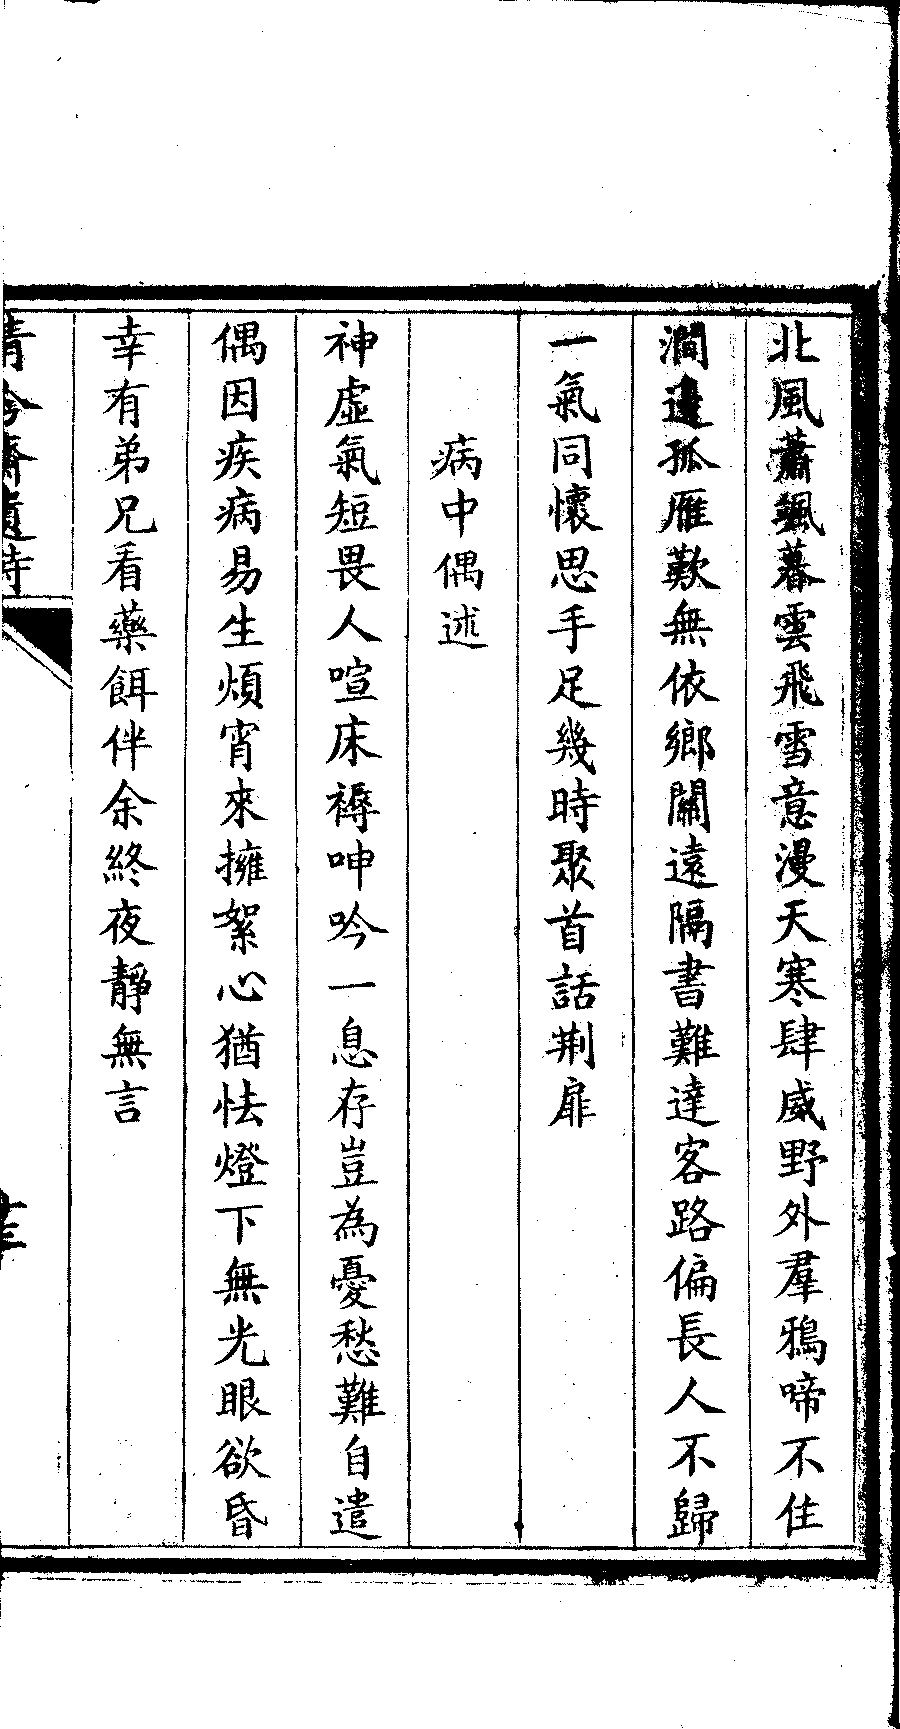 北風蕭颯暮雲飛雪意漫天寒肆威野外羣鴉啼不住
澗邊孤雁歎無依鄉關遠隔書難達客路偏長人不歸
一氣同懷思手足幾時聚首話荆扉
病中偶述
神虛氣短畏人喧床褥呻吟一息存豈為憂愁難自遣
偶因疾病易生煩宵來擁絮心猶怯燈下無光眼欲昏
幸有弟兄看藥餌伴余終夜靜無言